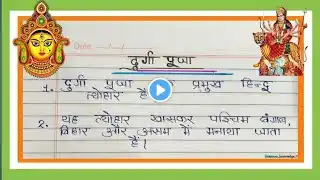 Date
दुर्गा पूजा
1. दुर्गा पूजा प्रमुख हिन्दू
त्योहार है
2. यह त्योहार खासकर पश्चिम बंगाल,
बिहार और असम में मनाया जाता
है।